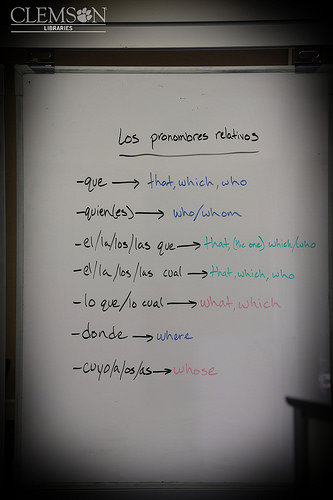 CLEMSON
LIBRARIES
Los pronombres relativos
-que → that, which, who
-quien(es) → who/whom
-el/la/los/las que → that, (the one) which/who
-el/la/los/las cual → that, which, who
-lo que/lo cual → what, which
-donde → where
-cuyo/a/os/as → whose